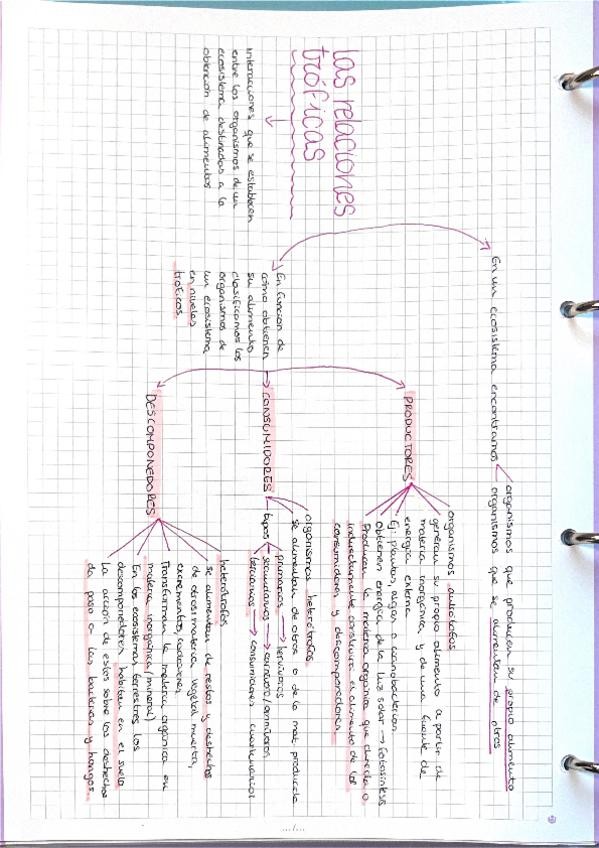 las relaciones
tróficas
Interacciones que se establecen
entre los organismos de un
ecosistema destinadas a la
obtención de alimentos
En un ecosistema encontramos
organismos que producen su propio alimento
organismos que se alimentan de otros
En función de
cómo obtienen
su alimento
clasificamos los
organismos de
un ecosistema
en niveles
tróficos.
PRODUCTORES
organismos autótrofos
generan su propio alimento a partir de
materia inorgánica y de una fuente de
energía externa
Ej: plantas, algas o cianobacterias
obtienen energía de la luz solar → fotosíntesis
Producen la materia orgánica que directa o
indirectamente constituirá el alimento de los
consumidores y descomponedores.
CONSUMIDORES
organismos heterótrofos
se alimentan de otros o de la mat. producida
tipos
primarios → herviboros
secundarios → carnívoro/omnívoros
terciarios → consumidores cuaternarios
DESCOMPONEDORES
heterótrofos
se alimentan de restos y deshechos
de otros: materia vegetal muerta,
excrementos, cadáveres
Transforman la materia orgánica en
materia inorgánica (mineral)
En los ecosistemas terrestres los
descomponedores habitan en el suelo
La acción de estos sobre los deshechos
da paso a las bacterias y hongos.